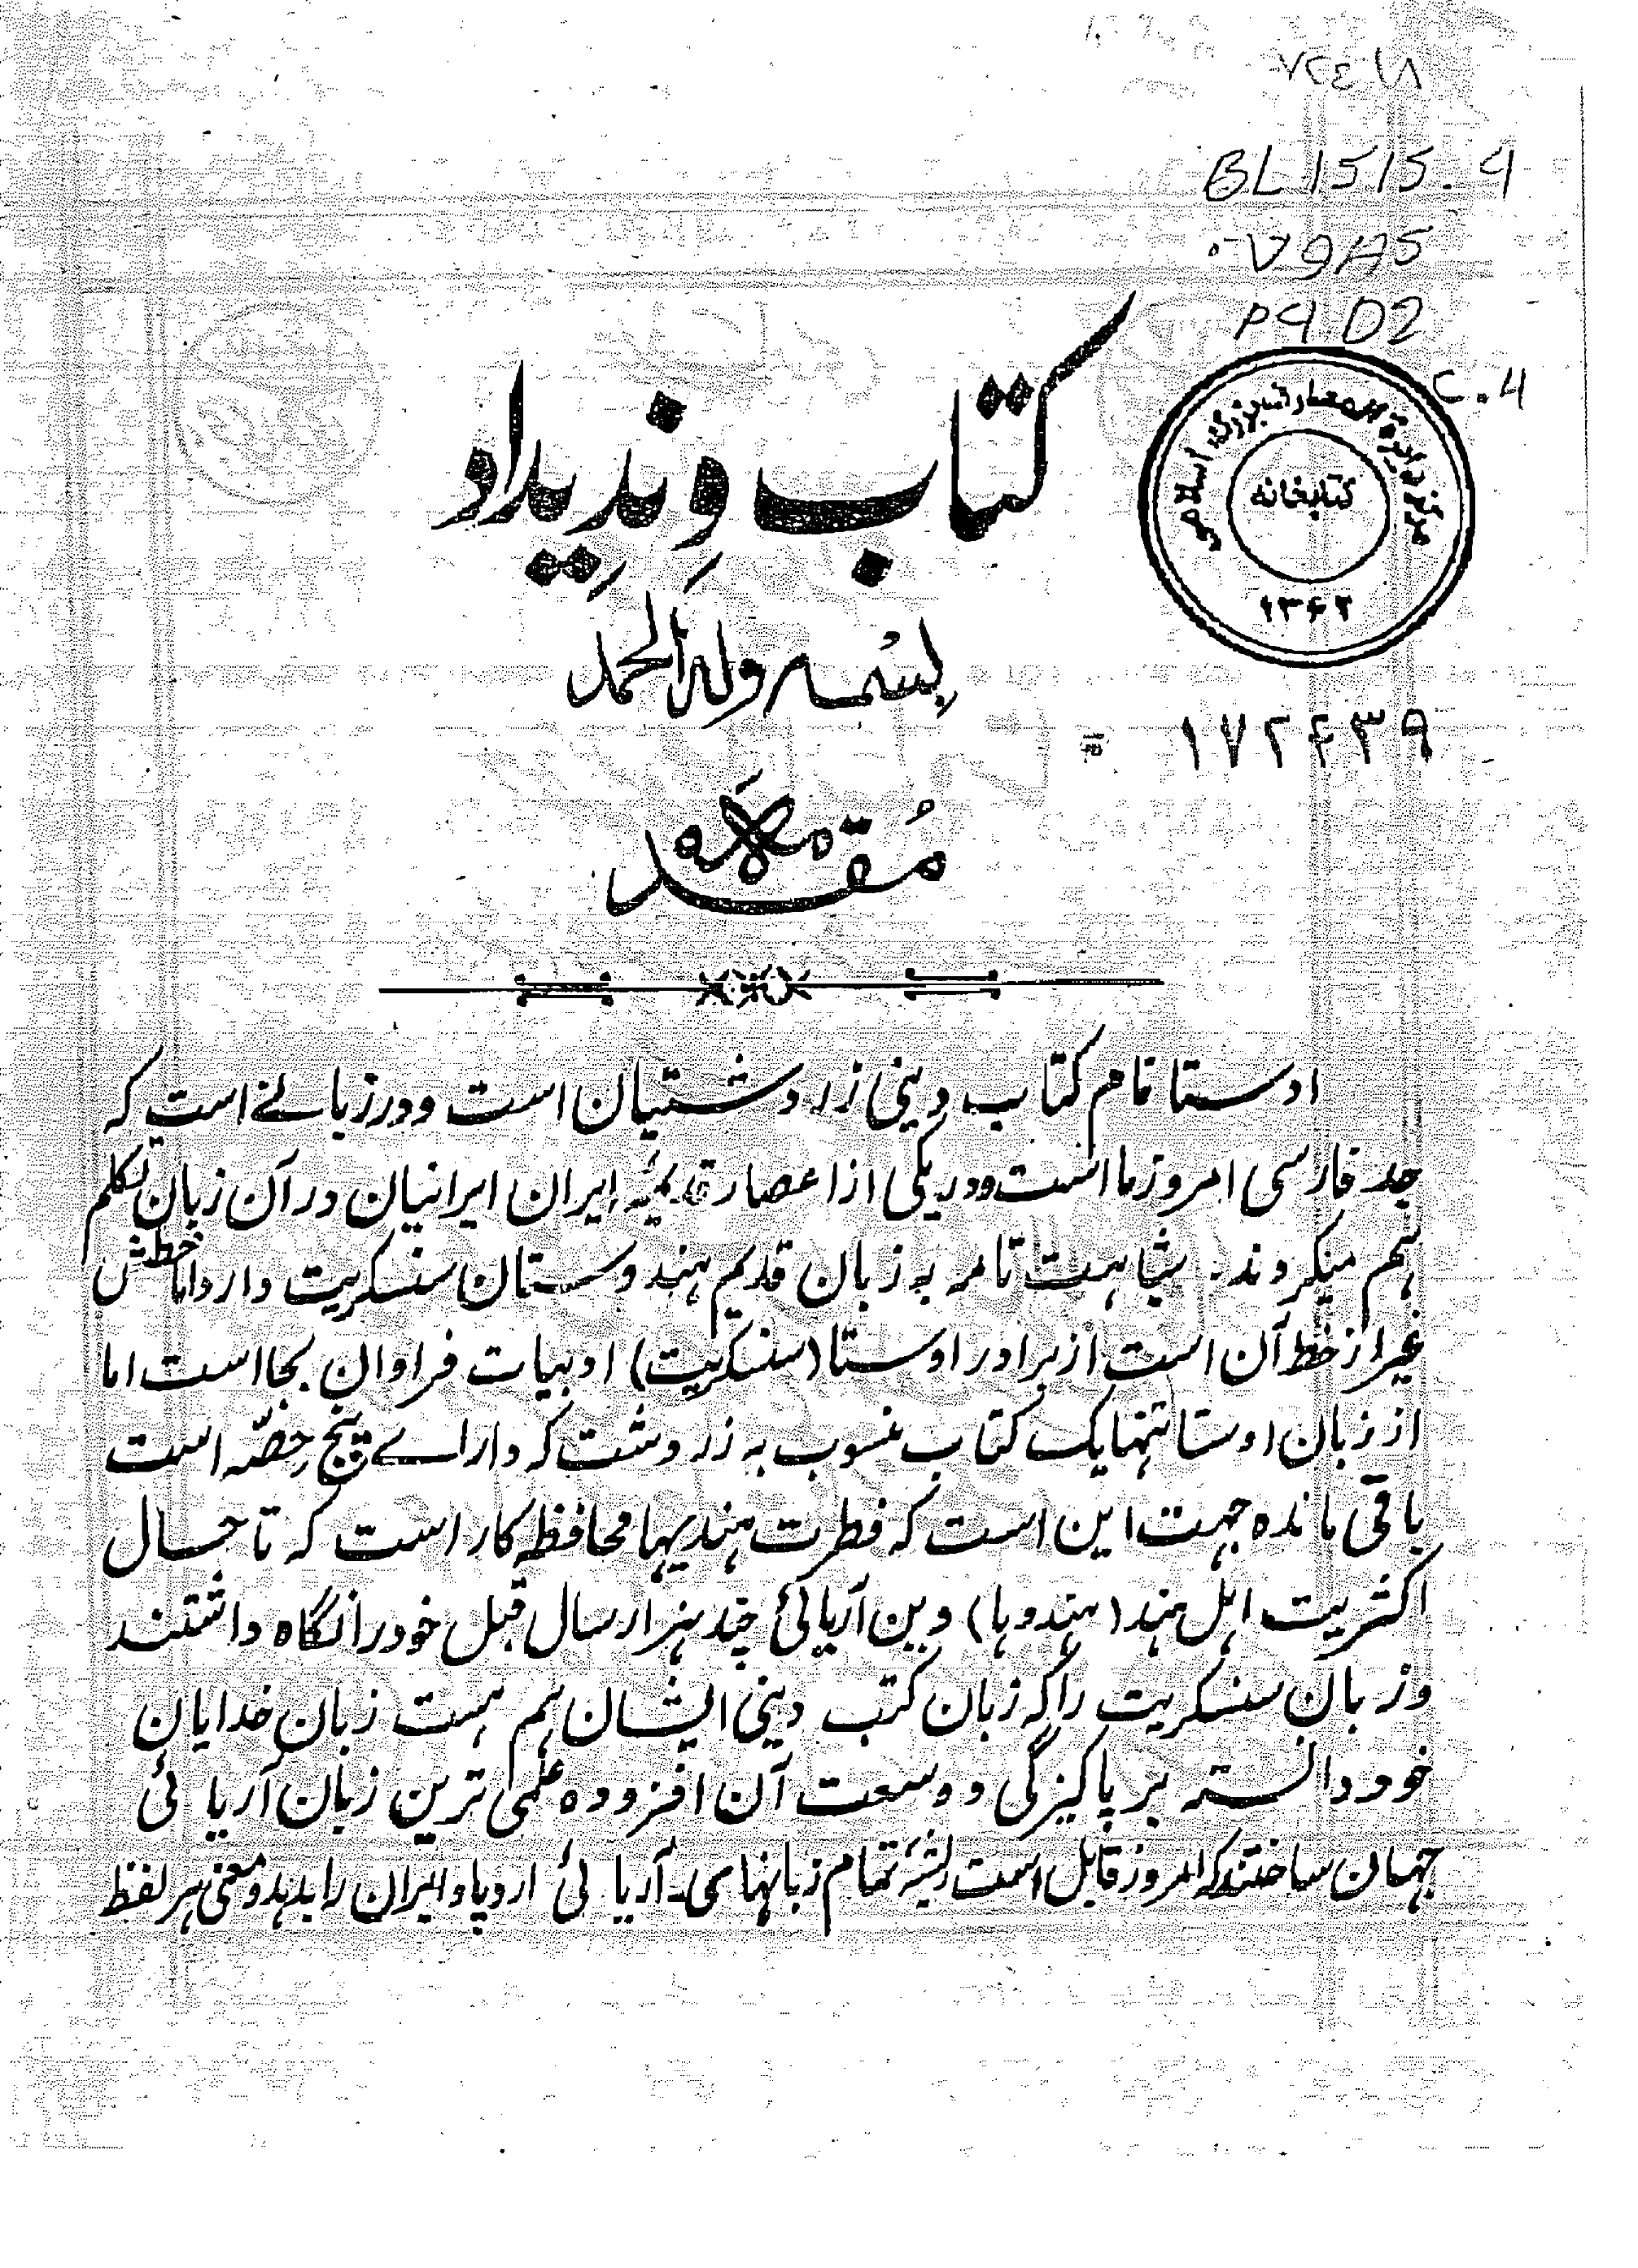 ۷۲۴۱۸
BL 1515.4
.V9A5
P4 D2
C.4
کتاب وِندِیداد
مرکز دایرة المعارف بزرگ اسلامی
کتابخانه
۱۳۶۲
بسمه وله الحمد
۱۷۲۶۳۹
مُقدمه
اوستا نام کتاب دینی زردشتیان است و در زبانے است که
جد فارسی امروز ما است و در یکی از اعصار قدیمهٔ ایران ایرانیان در آن زبان تکلم
هم میکردند. شباهت تامه به زبان قدیم هندوستان سنسکریت دارد اما خطش
غیر از خط آن است از برادر اوستا (سنسکریت) ادبیات فراوان بجا است اما
از زبان اوستا تنها یک کتاب منسوب به زردشت که داراے پنج حصّه است
باقی مانده جهت این است که فطرت هندیها محافظه کار است که تا حال
اکثریت اهل هند (هندوها) دین آریائی چند هزار سال قبل خود را نگاه داشتند
و زبان سنسکریت را که زبان کتب دینی ایشان هم هست زبان خدایان
خود دانسته بر پاکیزگی و وسعت آن افزوده علمی ترین زبان آریائی
جهان ساختند که امروز قابل است ریشهٔ تمام زبانهای آریائی اروپا و ایران را بدهد و معنی هر لفظ